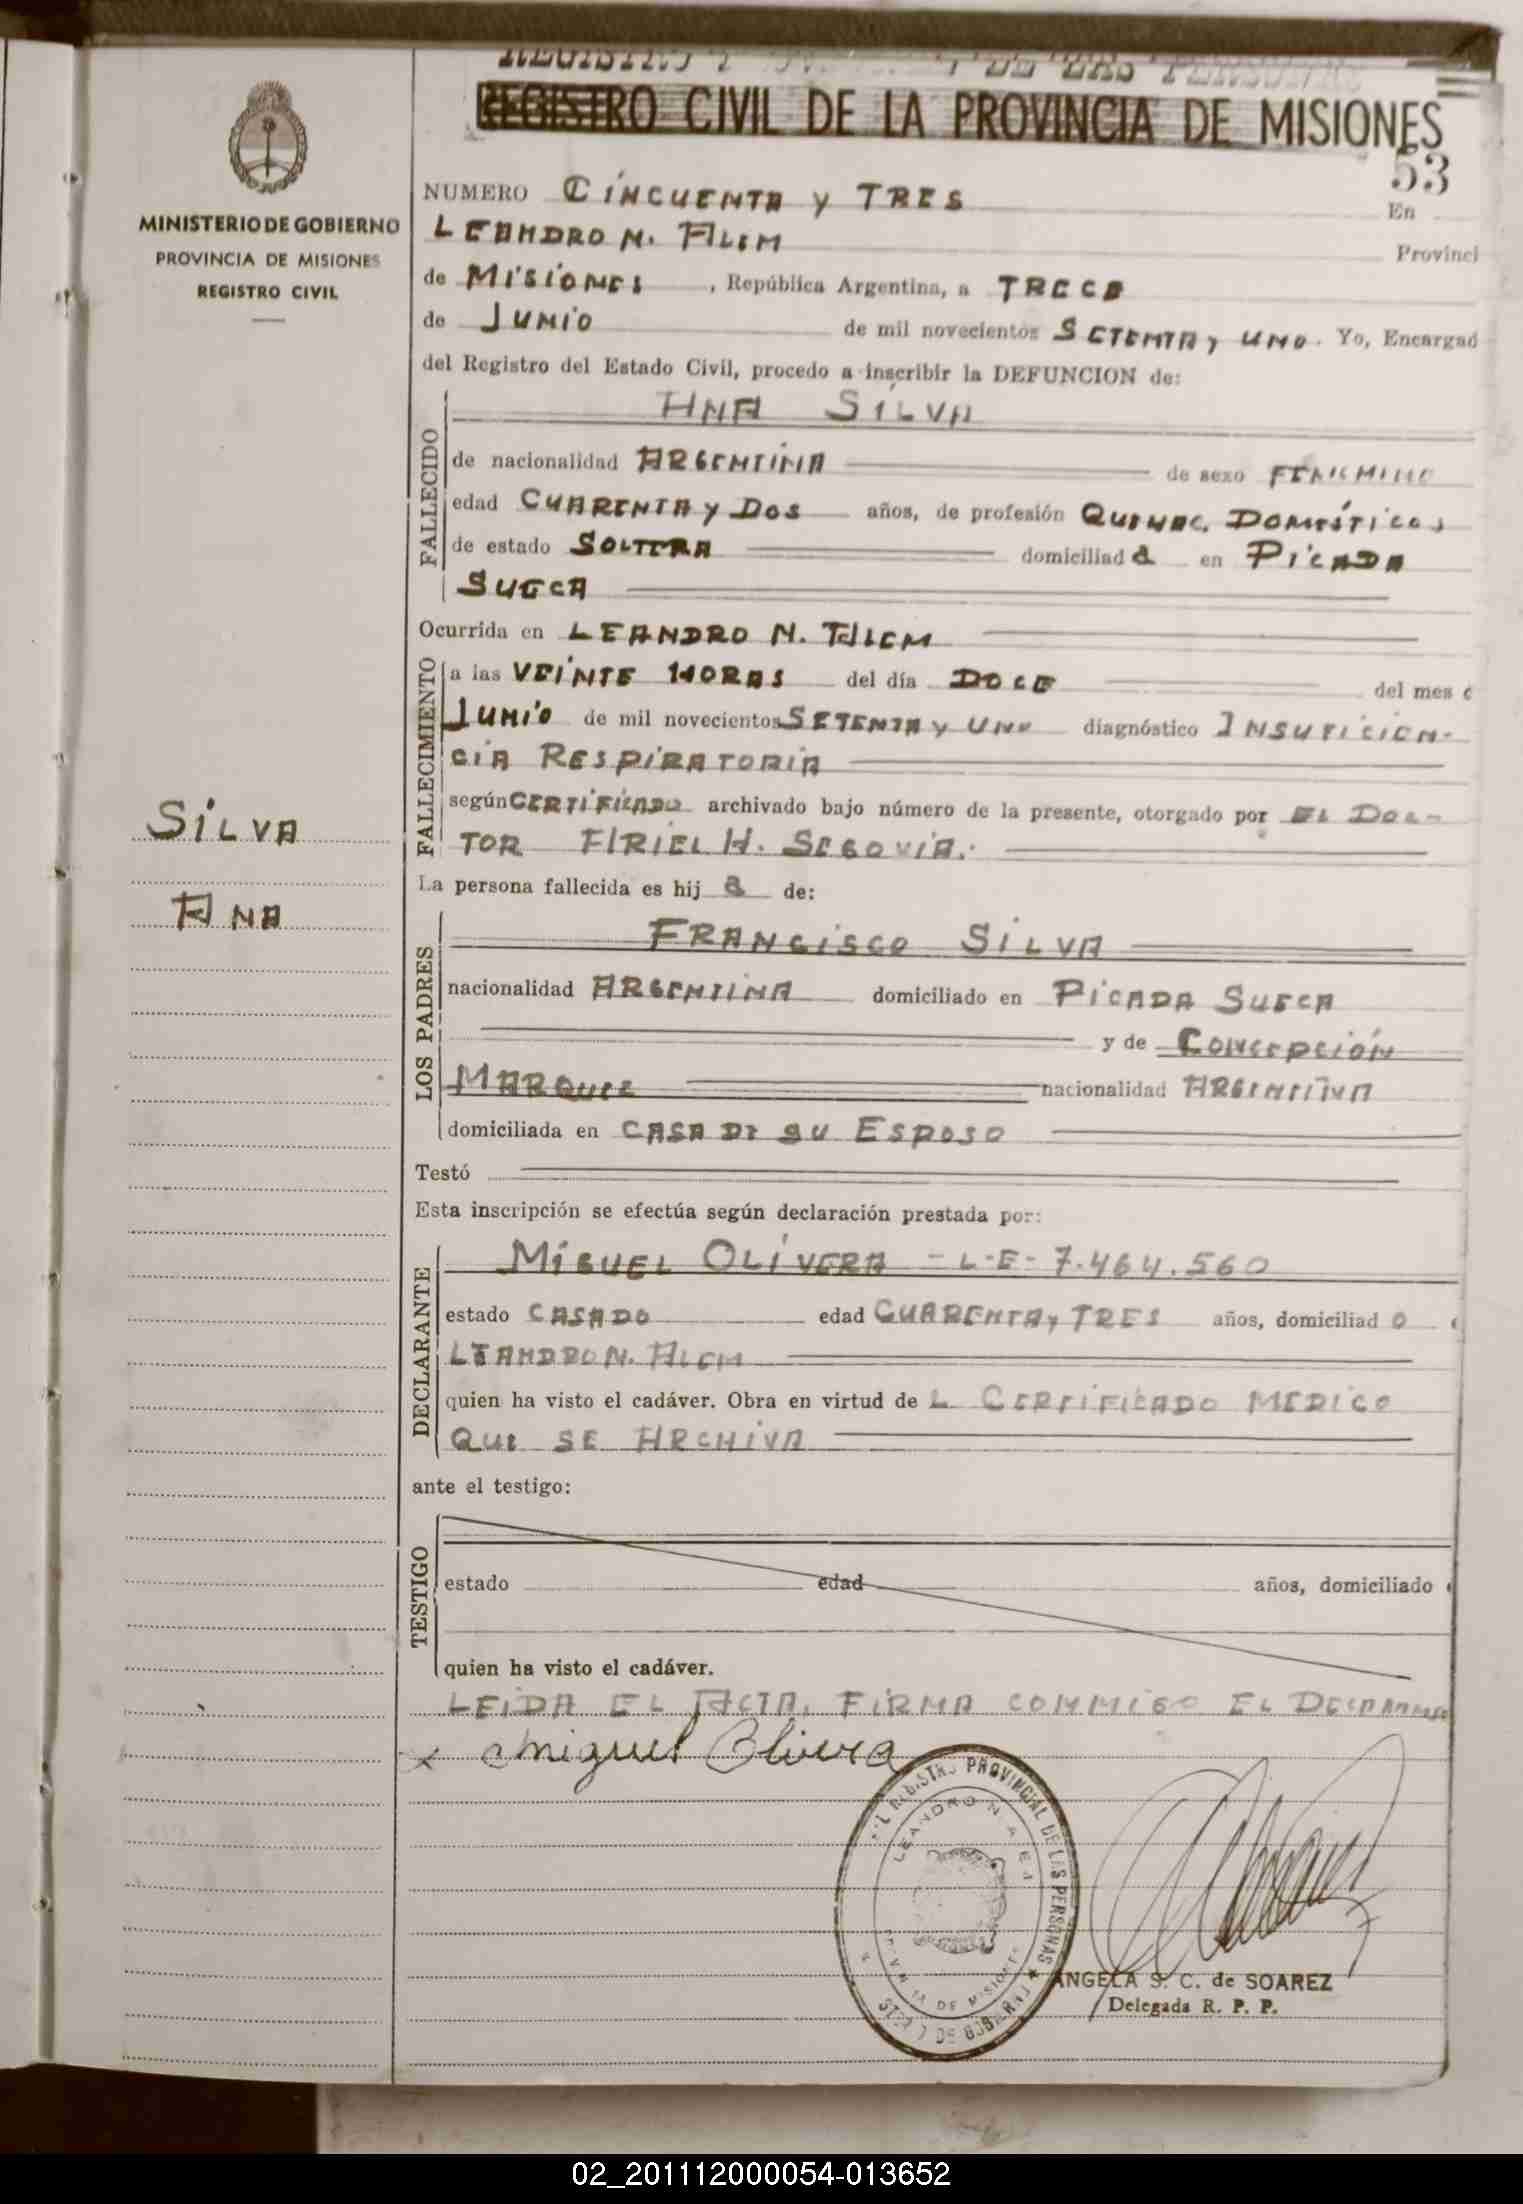 REGISTRO CIVIL DE LA PROVINCIA DE MISIONES
53
MINISTERIO DE GOBIERNO
PROVINCIA DE MISIONES
REGISTRO CIVIL
NUMERO CINCUENTA y TRES En
LEANDRO N. ALEM Provinci
de MISIONES, República Argentina, a TRECE
de JUNIO de mil novecientos SETENTA y UNO. Yo, Encargad
del Registro del Estado Civil, procedo a inscribir la DEFUNCION de:
FALLECIDO
ANA SILVA
de nacionalidad ARGENTINA de sexo FEMENINO
edad CUARENTA y DOS años, de profesión QUEHAC. DOMÉSTICOS
de estado SOLTERA domiciliad a en PICADA
SUECA
Ocurrida en LEANDRO N. ALEM
FALLECIMIENTO
a las VEINTE HORAS del día DOCE del mes
JUNIO de mil novecientos SETENTA y UNO diagnóstico INSUFICIEN-
CIA RESPIRATORIA
según CERTIFICADO archivado bajo número de la presente, otorgado por EL DOC-
TOR ARIEL H. SEGOVIA.
SILVA
ANA
La persona fallecida es hij a de:
LOS PADRES
FRANCISCO SILVA
nacionalidad ARGENTINA domiciliado en PICADA SUECA
y de CONCEPCIÓN
MARQUEZ nacionalidad ARGENTINA
domiciliada en CASA DE SU ESPOSO
Testó
Esta inscripción se efectúa según declaración prestada por:
DECLARANTE
MIGUEL OLIVERA - L-E- 7.464.560
estado CASADO edad CUARENTA y TRES años, domiciliad O
LEANDRO N. ALEM
quien ha visto el cadáver. Obra en virtud de L CERTIFICADO MEDICO
QUE SE ARCHIVA
ante el testigo:
TESTIGO
estado edad años, domiciliado
quien ha visto el cadáver.
LEIDA EL ACTA, FIRMA CONMIGO EL DECLARANTE
x Miguel Olivera
REGISTRO PROVINCIAL DE LAS PERSONAS
LEANDRO N. ALEM
PROVINCIA DE MISIONES
ANGELA S. C. de SOAREZ
Delegada R. P. P.
02_201112000054-013652